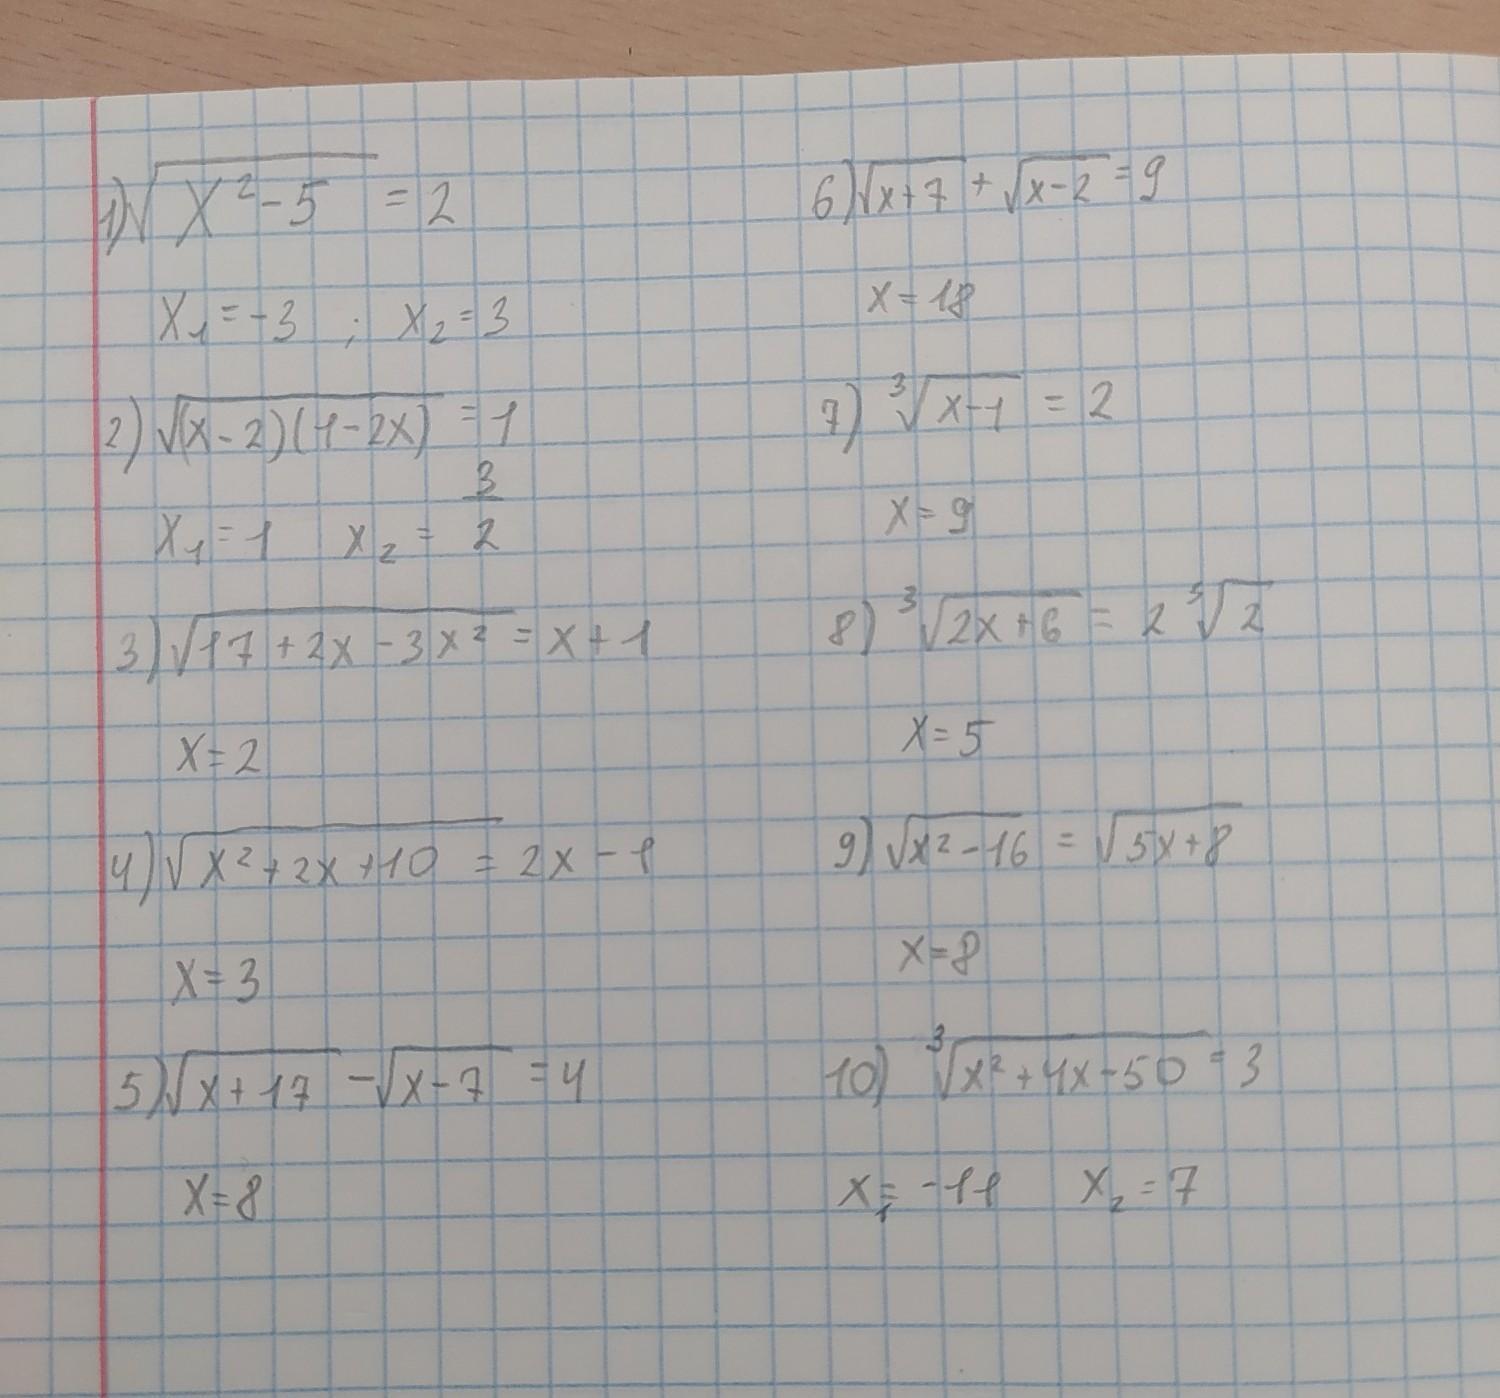 1) √(x²-5) = 2
x₁ = -3 ; x₂ = 3
2) √((x-2)(1-2x)) = 1
x₁ = 1 x₂ = 3/2
3) √(17+2x-3x²) = x+1
x=2
4) √(x²+2x+10) = 2x-1
x=3
5) √(x+17) - √(x-7) = 4
x=8
6) √(x+7) + √(x-2) = 9
x=18
7) ³√(x-1) = 2
x=9
8) ³√(2x+6) = 2 ³√2
x=5
9) √(x²-16) = √(5x+8)
x=8
10) ³√(x²+4x-50) = 3
x₁ = -11 x₂ = 7